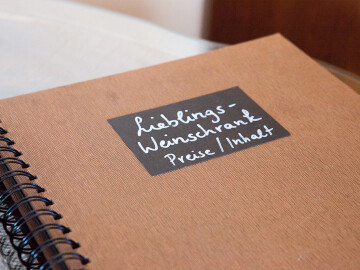 Lieblings-
Weinschrank
Preise/Inhalt